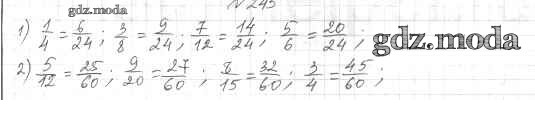 N 245
gdz.moda
1) 1/4 = 6/24; 3/8 = 9/24; 7/12 = 14/24; 5/6 = 20/24;
gdz.moda
2) 5/12 = 25/60; 9/20 = 27/60; 8/15 = 32/60; 3/4 = 45/60;